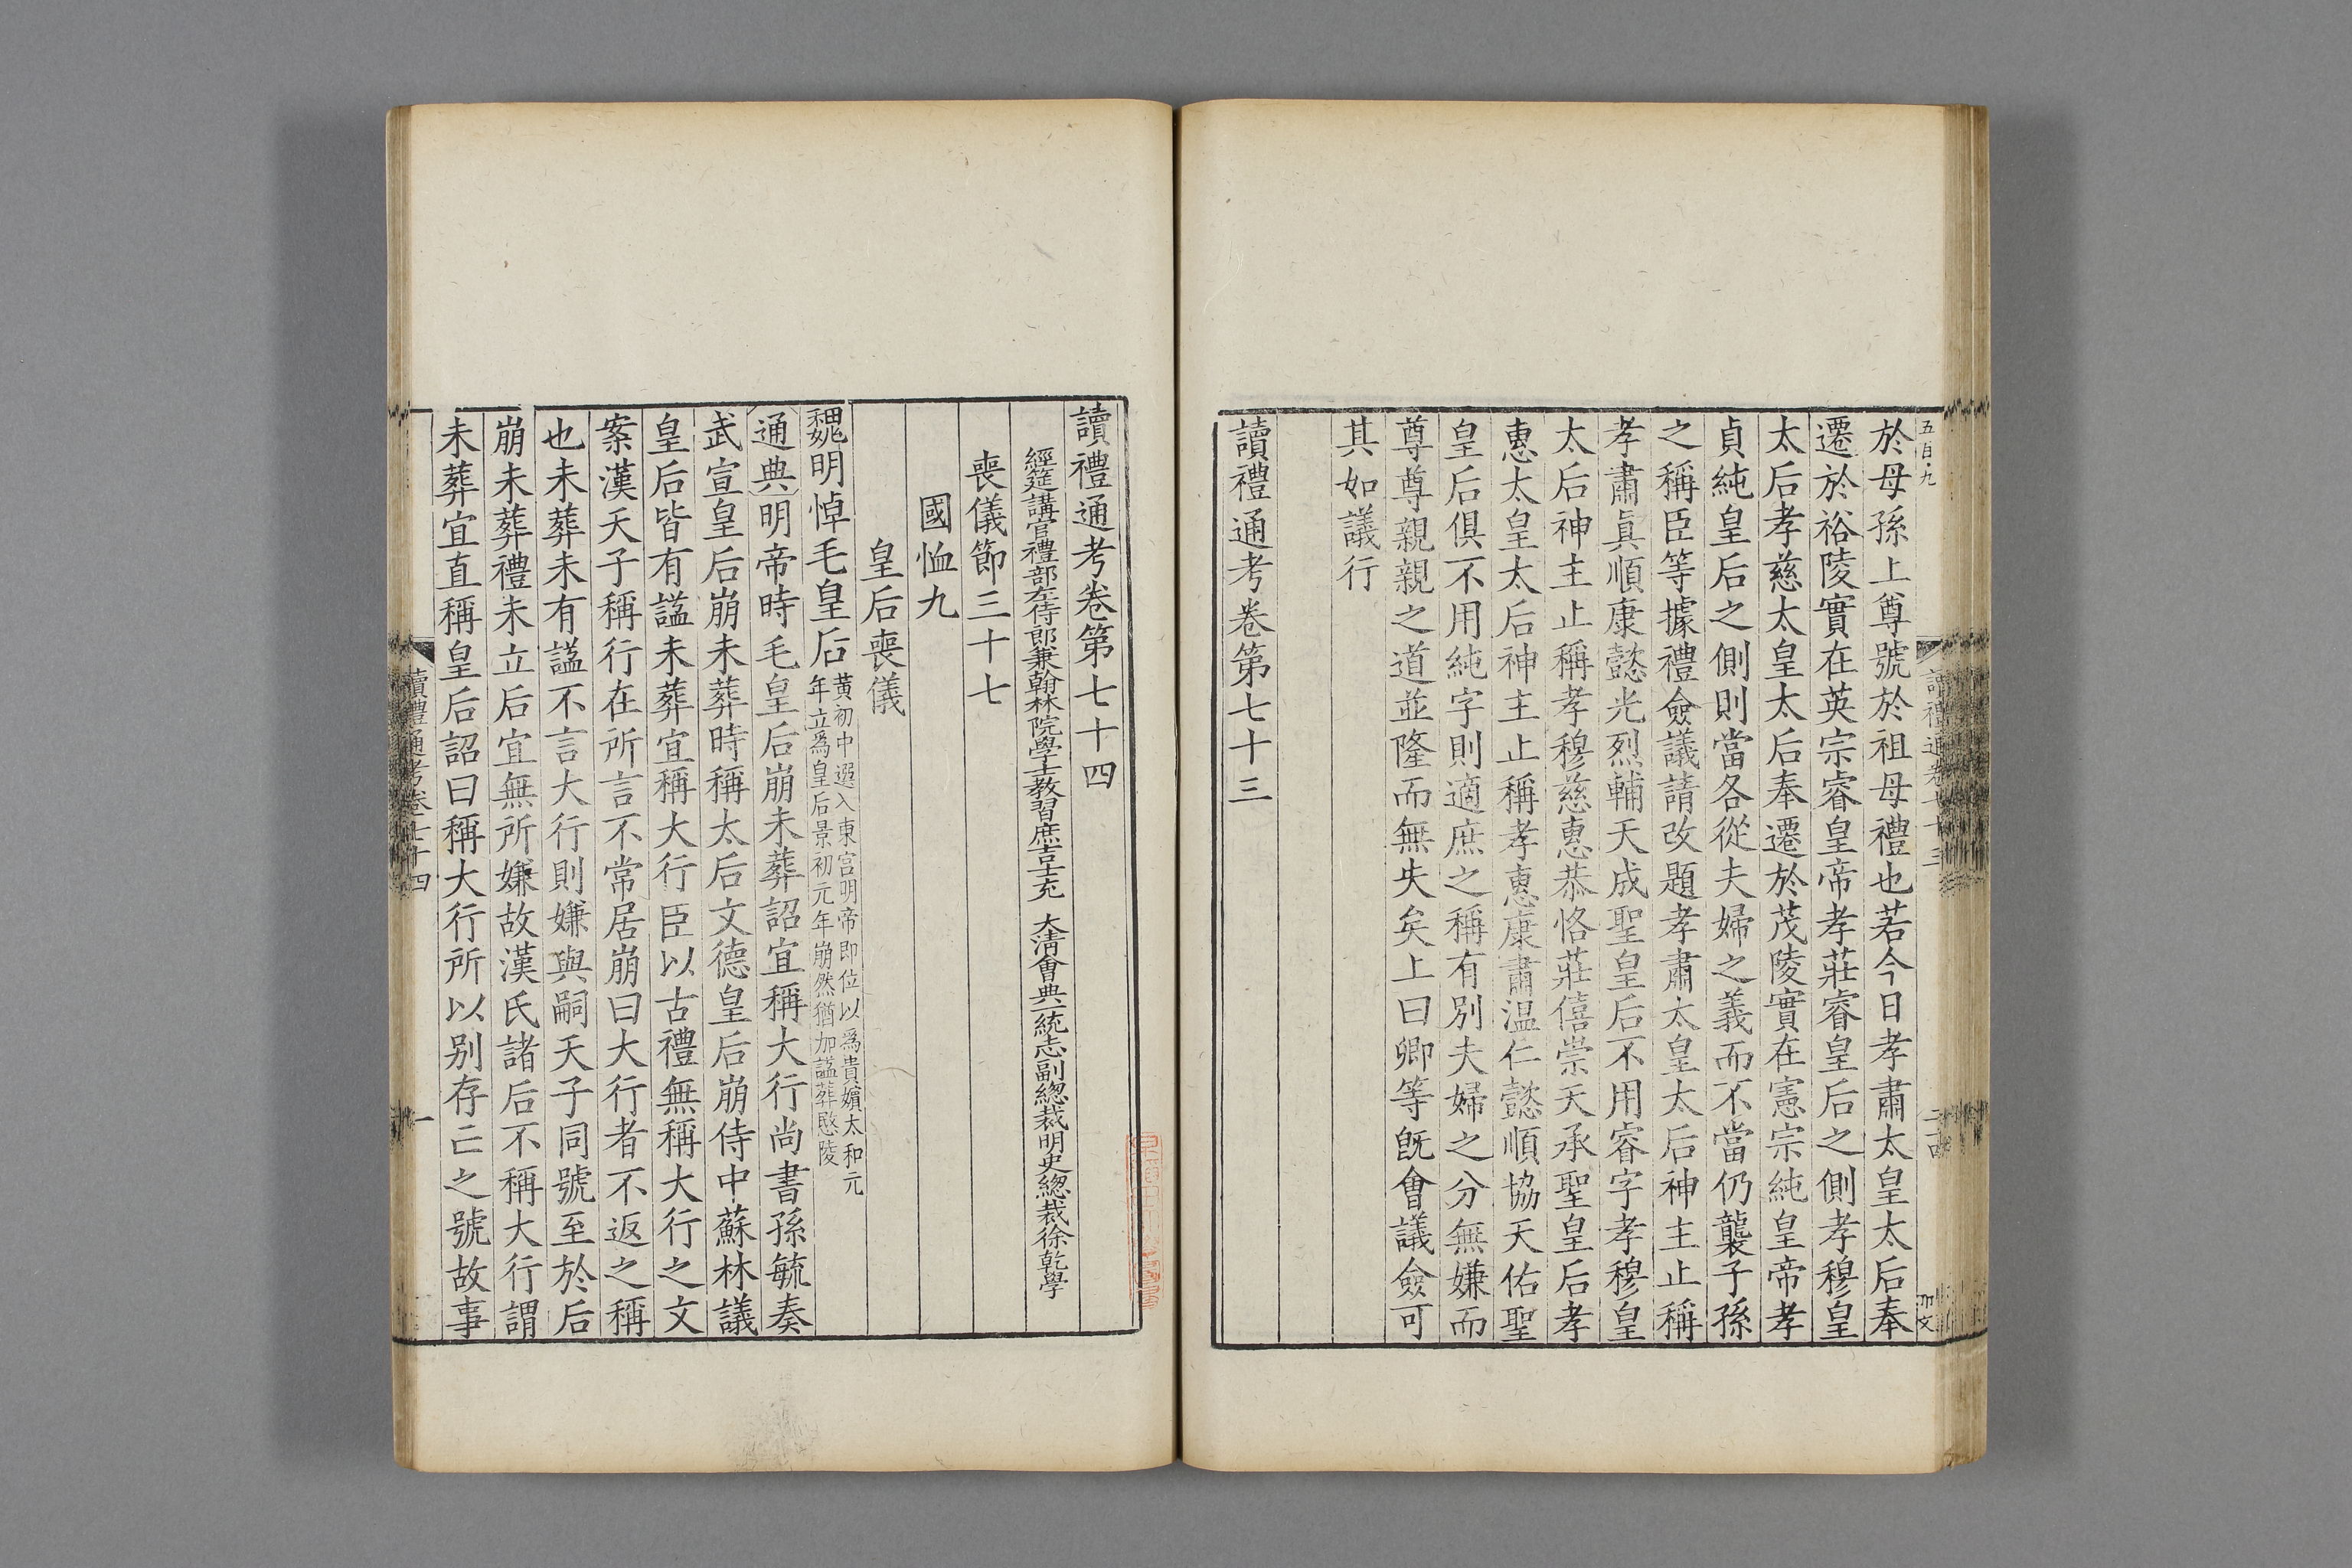 於母孫上尊號於祖母禮也若今日孝肅太皇太后奉
遷於裕陵實在英宗睿皇帝孝莊睿皇后之側孝穆皇
太后孝慈太皇太后奉遷於茂陵實在憲宗純皇帝孝
貞純皇后之側則當各從夫婦之義而不當仍襲子孫
之稱臣等據禮僉議請改題孝肅太皇太后神主止稱
孝肅眞順康懿光烈輔天成聖皇后不用睿字孝穆皇
太后神主止稱孝穆慈惠恭恪莊僖崇天承聖皇后孝
惠太皇太后神主止稱孝惠康肅温仁懿順協天佑聖
皇后俱不用純字則適庶之稱有別夫婦之分無嫌而
尊尊親親之道並隆而無失矣上曰卿等旣會議僉可
其如議行
讀禮通考卷第七十三
讀禮通考卷第七十四
經筵講官禮部左侍郎兼翰林院學士教習庶吉士充 大清會典一統志副總裁明史總裁徐乾學
喪儀節三十七
國恤九
皇后喪儀
魏明悼毛皇后黃初中選入東宫明帝即位以爲貴嬪太和元
年立爲皇后景初元年崩然猶加諡葬愍陵
通典明帝時毛皇后崩未葬詔宜稱大行尚書孫毓奏
武宣皇后崩未葬時稱太后文德皇后崩侍中蘇林議
皇后皆有諡未葬宜稱大行臣以古禮無稱大行之文
案漢天子稱行在所言不常居崩曰大行者不返之稱
也未葬未有諡不言大行則嫌與嗣天子同號至於后
崩未葬禮未立后宜無所嫌故漢氏諸后不稱大行謂
未葬宜直稱皇后詔曰稱大行所以別存亡之號故事
讀禮通考卷七十四
一